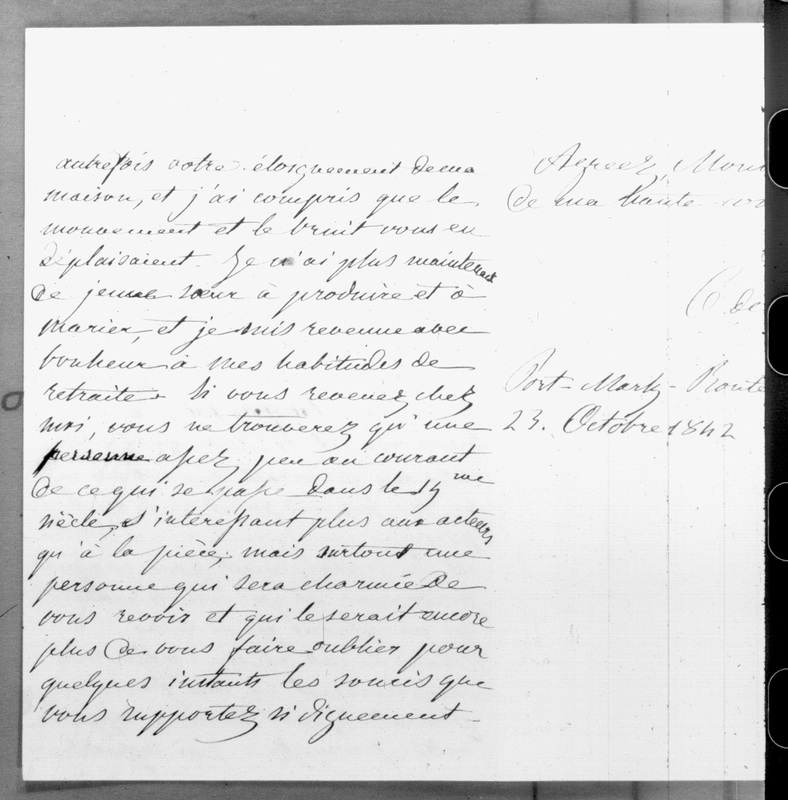 autrefois votre éloignement de ma
maison, et j'ai compris que le
mouvement et le bruit vous en
déplaisaient. Je n'ai plus maintenant
de jeune sœur à produire et à
marier, et je suis revenue avec
bonheur à mes habitudes de
retraite. Si vous revenez chez
moi, vous ne trouverez qu'une
personne assez peu au courant
de ce qui se passe dans le 19me
siècle, s'intéressant plus aux acteurs
qu'à la pièce; mais surtout une
personne qui sera charmée de
vous revoir et qui le serait encore
plus de vous faire oublier pour
quelques instants les soucis que
vous supportez si dignement.
Agréez, Mon
de ma haute
C. de
Port-Marly - Route
23. Octobre 1842